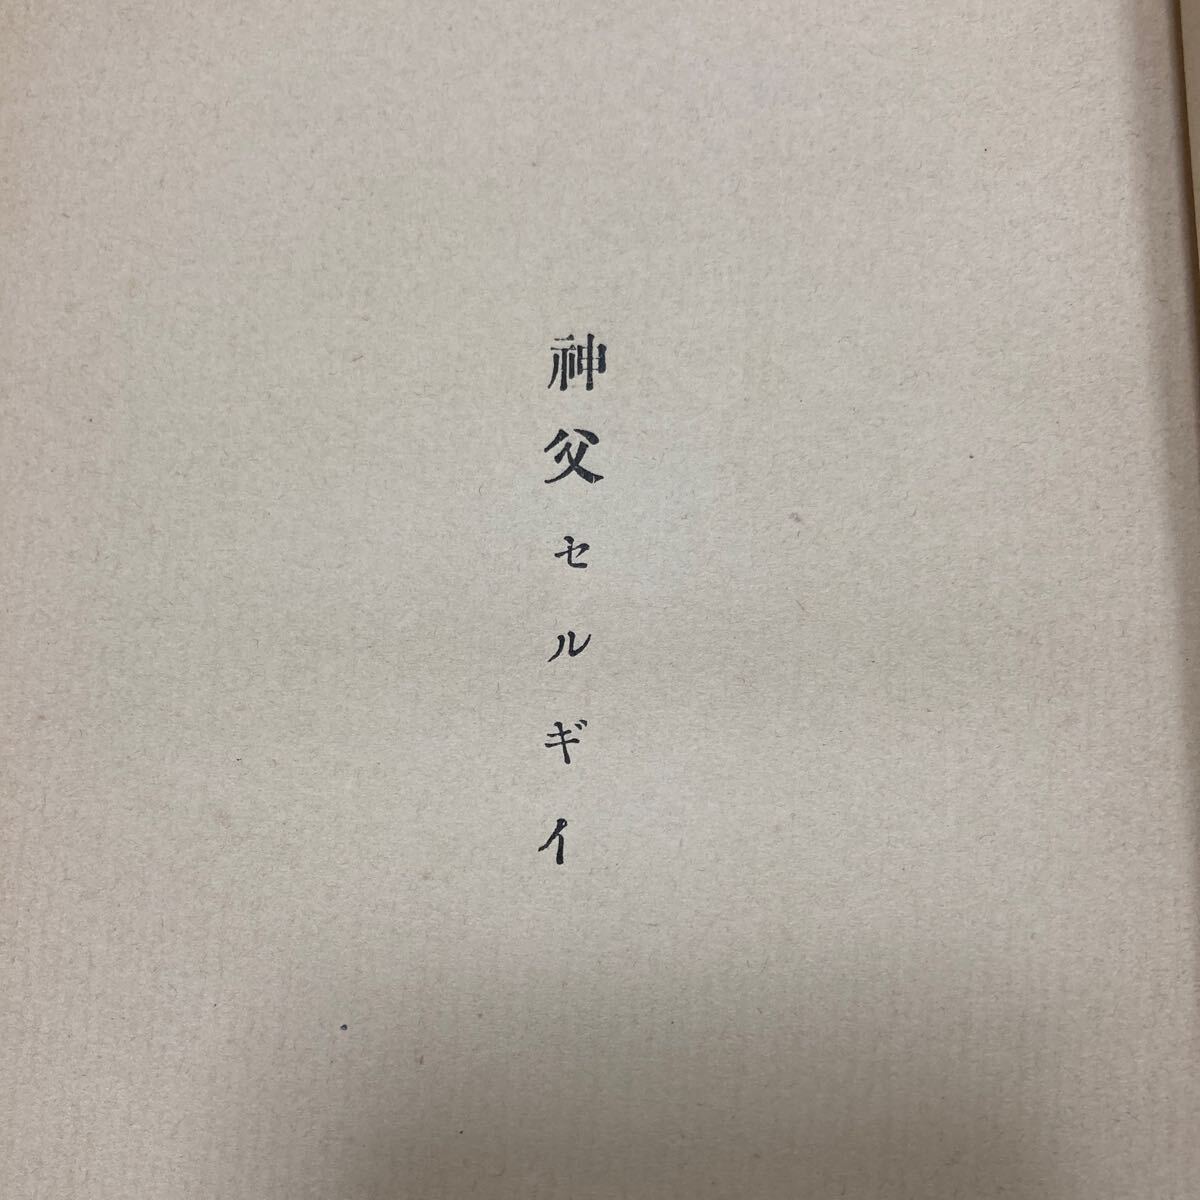 神父セルギイ